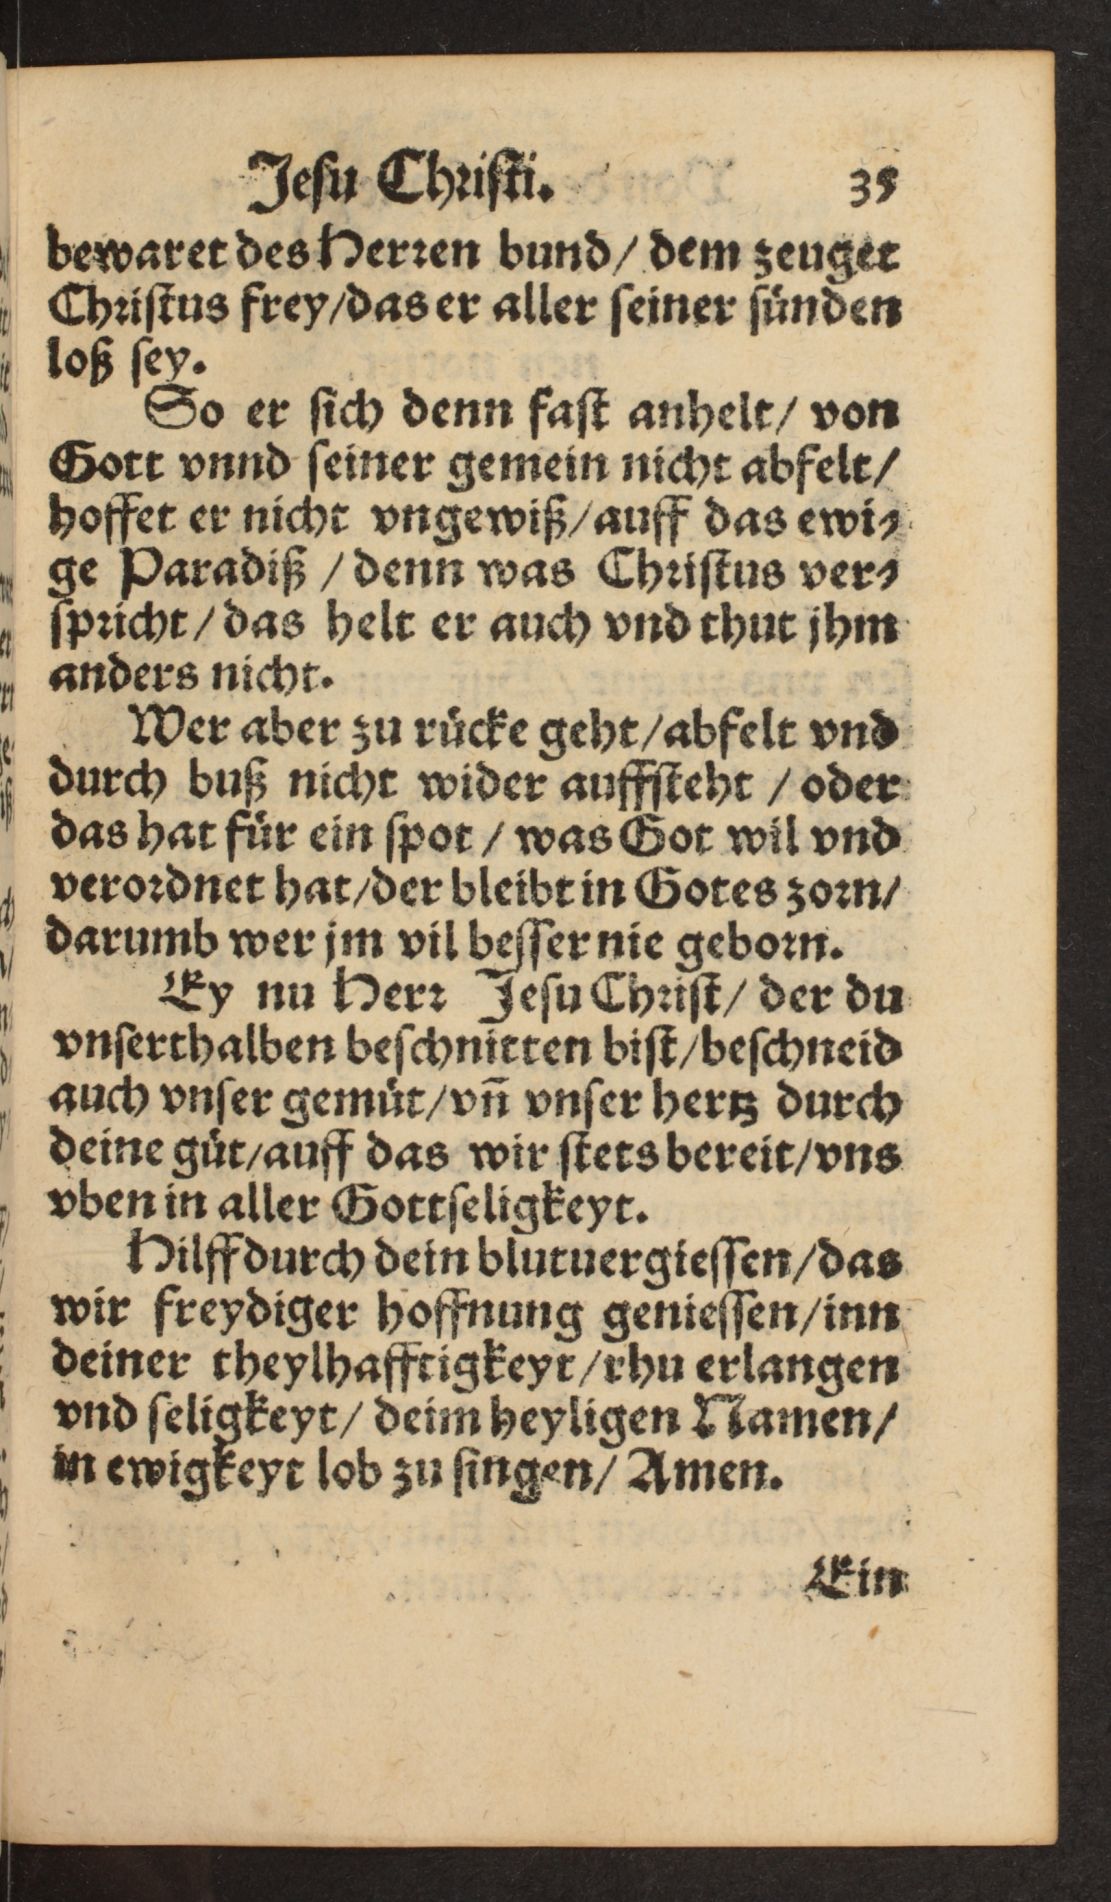 Jesu Christi. 35
bewaret des Herren bund / dem zeuget
Christus frey / das er aller seiner sünden
loß sey.
So er sich denn fast anhelt / von
Gott vnnd seiner gemein nicht abfelt /
hoffet er nicht vngewiß / auff das ewi-
ge Paradiß / denn was Christus ver-
spricht / das helt er auch vnd thut jhm
anders nicht.
Wer aber zu rücke geht / abfelt vnd
durch buß nicht wider auffsteht / oder
das hat für ein spot / was Got wil vnd
verordnet hat / der bleibt in Gotes zorn /
darumb wer jm vil besser nie geborn.
Ey nu Herr Jesu Christ / der du
vnserthalben beschnitten bist / beschneid
auch vnser gemüt / vñ vnser hertz durch
deine güt / auff das wir stets bereit / vns
vben in aller Gottseligkeyt.
Hilff durch dein blutuergiessen / das
wir freydiger hoffnung geniessen / inn
deiner theylhafftigkeyt / rhu erlangen
vnd seligkeyt / deim heyligen Namen /
in ewigkeyt lob zu singen / Amen.
Ein